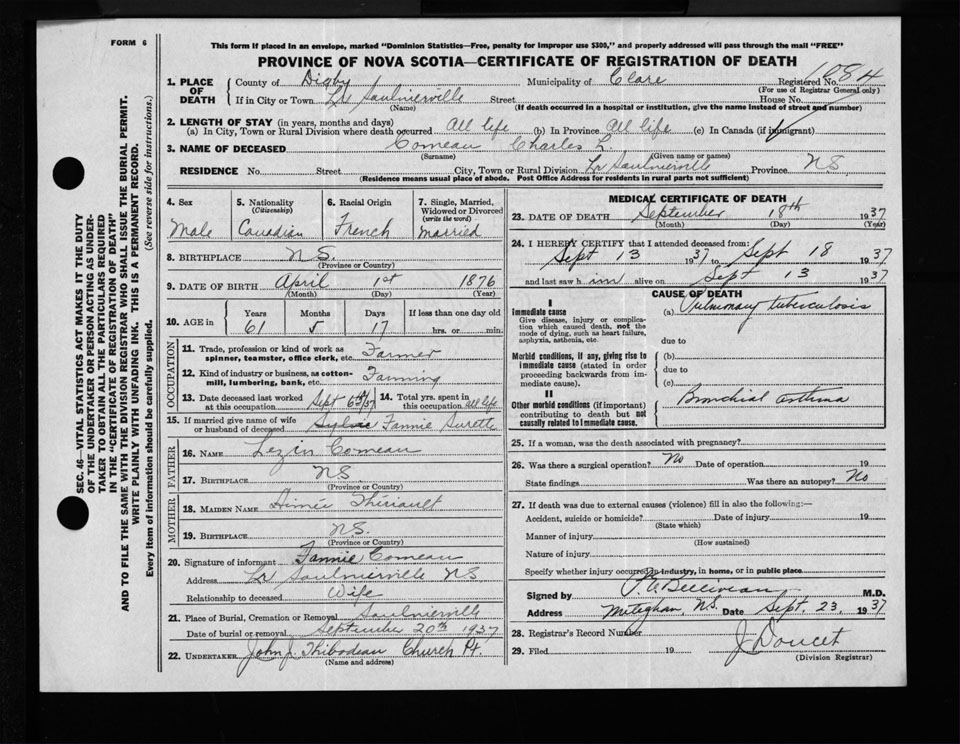 FORM 6
This form if placed in an envelope, marked "Dominion Statistics—Free, penalty for improper use $300," and properly addressed will pass through the mail "FREE"
PROVINCE OF NOVA SCOTIA—CERTIFICATE OF REGISTRATION OF DEATH
1. PLACE OF DEATH
County of Digby Municipality of Clare Registered No. 1084
(For use of Registrar General only)
If in City or Town Lr Saulnierville Street House No.
(Name) (If death occurred in a hospital or institution, give the name instead of street and number)
2. LENGTH OF STAY (in years, months and days)
(a) In City, Town or Rural Division where death occurred All life (b) In Province All life (c) In Canada (if immigrant)
3. NAME OF DECEASED Comeau Charles L.
(Surname) (Given name or names)
RESIDENCE No. Street City, Town or Rural Division Lr Saulnierville Province NS
(Residence means usual place of abode. Post Office Address for residents in rural parts not sufficient)
4. Sex Male
5. Nationality (Citizenship) Canadian
6. Racial Origin French
7. Single, Married, Widowed or Divorced (write the word) Married
8. BIRTHPLACE N.S.
(Province or Country)
9. DATE OF BIRTH April 1st 1876
(Month) (Day) (Year)
10. AGE in Years Months Days If less than one day old
61 5 17 hrs. or min.
OCCUPATION
11. Trade, profession or kind of work as spinner, teamster, office clerk, etc. Farmer
12. Kind of industry or business, as cotton-mill, lumbering, bank, etc. Farming
13. Date deceased last worked at this occupation Sept 6th/37
14. Total yrs. spent in this occupation All life
15. If married give name of wife or husband of deceased Sylvie Fannie Surette
FATHER
16. NAME Lezin Comeau
17. BIRTHPLACE NS
(Province or Country)
MOTHER
18. MAIDEN NAME Aimée Thériault
19. BIRTHPLACE N.S.
(Province or Country)
20. Signature of informant Fannie Comeau
Address Lr Saulnierville NS
Relationship to deceased Wife
21. Place of Burial, Cremation or Removal Saulnierville
Date of burial or removal September 20th 1937
22. UNDERTAKER John J. Thibodeau Church Pt.
(Name and address)
MEDICAL CERTIFICATE OF DEATH
23. DATE OF DEATH September 18th 1937
(Month) (Day) (Year)
24. I HEREBY CERTIFY that I attended deceased from:
Sept 13 1937 to Sept 18 1937
and last saw him alive on Sept 13 1937
CAUSE OF DEATH
I
Immediate cause
Give disease, injury or complication which caused death, not the mode of dying, such as heart failure, asphyxia, asthenia, etc.
(a) Pulmonary tuberculosis
due to
Morbid conditions, if any, giving rise to immediate cause (stated in order proceeding backwards from immediate cause).
(b)
due to
(c)
II
Other morbid conditions (if important) contributing to death but not causally related to immediate cause.
Bronchial asthma
25. If a woman, was the death associated with pregnancy?
26. Was there a surgical operation? No Date of operation 19
State findings Was there an autopsy? No
27. If death was due to external causes (violence) fill in also the following:—
Accident, suicide or homicide? Date of injury 19
(State which)
Manner of injury
(How sustained)
Nature of injury
Specify whether injury occurred in industry, in home, or in public place
Signed by P. E. Belliveau M.D.
Address Meteghan, N.S. Date Sept. 23, 1937
28. Registrar's Record Number
29. Filed 19 J Doucet
(Division Registrar)
SEC. 46—VITAL STATISTICS ACT MAKES IT THE DUTY
OF THE UNDERTAKER OR PERSON ACTING AS UNDER-
TAKER TO OBTAIN ALL THE PARTICULARS REQUIRED
IN THE "CERTIFICATE OF REGISTRATION OF DEATH"
AND TO FILE THE SAME WITH THE DIVISION REGISTRAR WHO SHALL ISSUE THE BURIAL PERMIT.
WRITE PLAINLY WITH UNFADING INK. THIS IS A PERMANENT RECORD.
Every item of information should be carefully supplied. (See reverse side for instructions.)